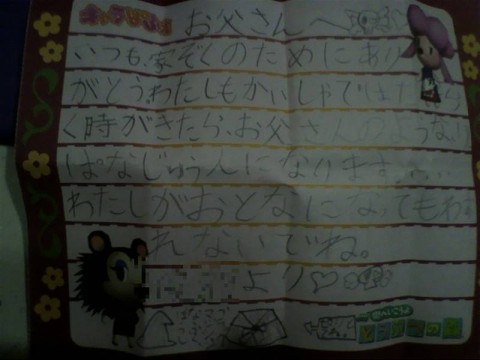 お父さんへ
いつも、家ぞくのためにあり
がとう。わたしもかいしゃではたら
く時がきたら、お父さんのようなり
ぱなじゅんになります。
わたしがおとなになってもわす
れないでね。
より♡
どうぶつの森